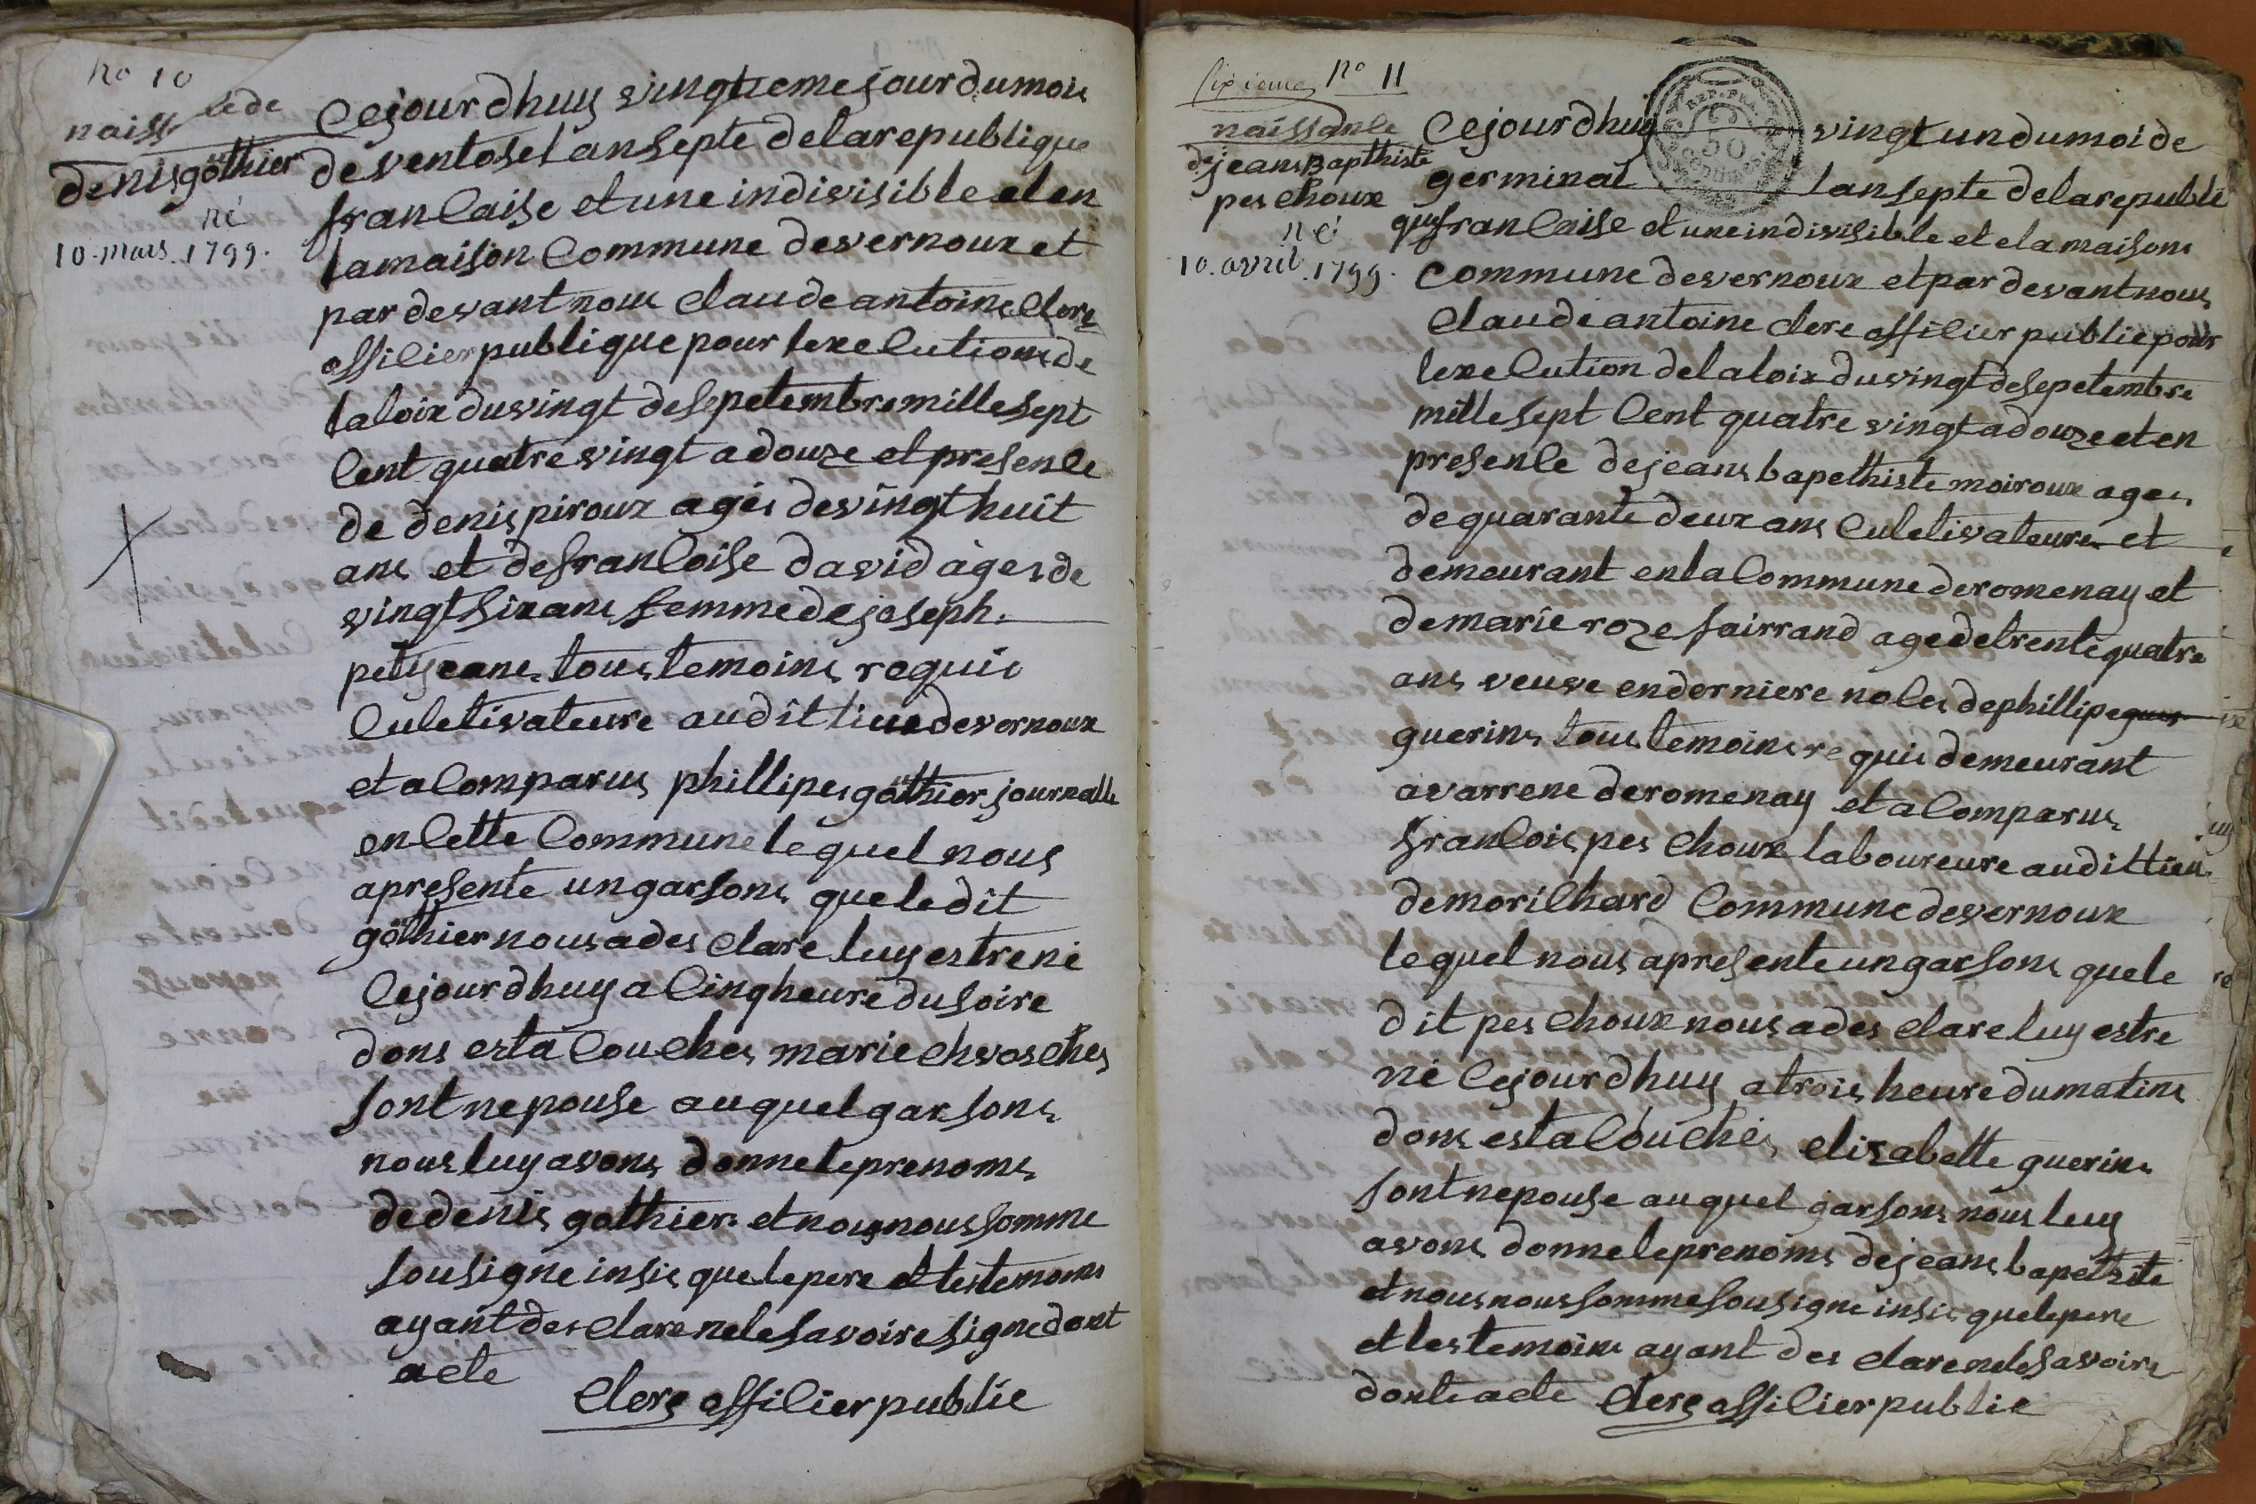 no 10
naiss ce de
denis gothier
né
10. mars. 1799.
Cejourdhuy vingtieme jour du mois
de ventose lan septe de la republique
francaise et une indivisible et en
la maison Commune de vernoux et
par devant nous claude antoine clerc
officier publique pour lexecutions de
la loix du vingt de sepetembre mille sept
Cent quatre vingt a douze et presence
de denis piroux agés de vingt huit
ans et de francoise david àges de
vingt six ans femme de joseph
petijeans tous temoins requis
Culetivateure audit lieu de vernoux
et a Comparus phillipes gothier journalle
en Cette Commune lequel nous
a presente un garsons que le dit
gothier nous a des clare luy estre né
Cejourdhuy a Cinq heure du soire
dons est a Couches marie
sont nepouse au quel garsons
nous luy avons donne le prenoms
de denis gothier et nous nous somme
sousigne insis que le pere et les temoins
ayant des clare ne le savoire signe dont
acte
clerc officier publie
sixieme no 11
naissance
de jeans Bapthiste
pes choux
né
10. avril. 1799.
REP. FRA.
50
Cejourdhuy vingt un du moi de
germinal lan septe de la republi
que francaise et une indivisible et e la maisons
Commune de vernoux et par devant nous
Claude antoine clerc officier public pour
lexecution de la loix du vingt de sepetembre
mille sept Cent quatre vingt a douze et en
presence de jeans bapethiste moiroux ages
de quarante deux ans Culetivateure et
demeurant en la Commune de romenay et
de marie roze fairrand age de trente quatre
ans veuve en derniere noles de phillipe
guerins tous temoins requis demeurant
a varrene de romenay et a Comparus
francois pes choux laboureure au dit lieu
de morilhard Commune de vernoux
lequel nous a presente un garsons que le
dit pes choux nous a des clare luy estre
né Cejourdhuy a trois heure du matins
dons est a Couches elizabette guerins
sont nepouse au quel garsons nous luy
avons donne le prenoms de jeans bapetiste
et nous nous somme sousigne insis que le pere
et les temoins ayant des clare ne le savoire
dont acte clerc officier publie